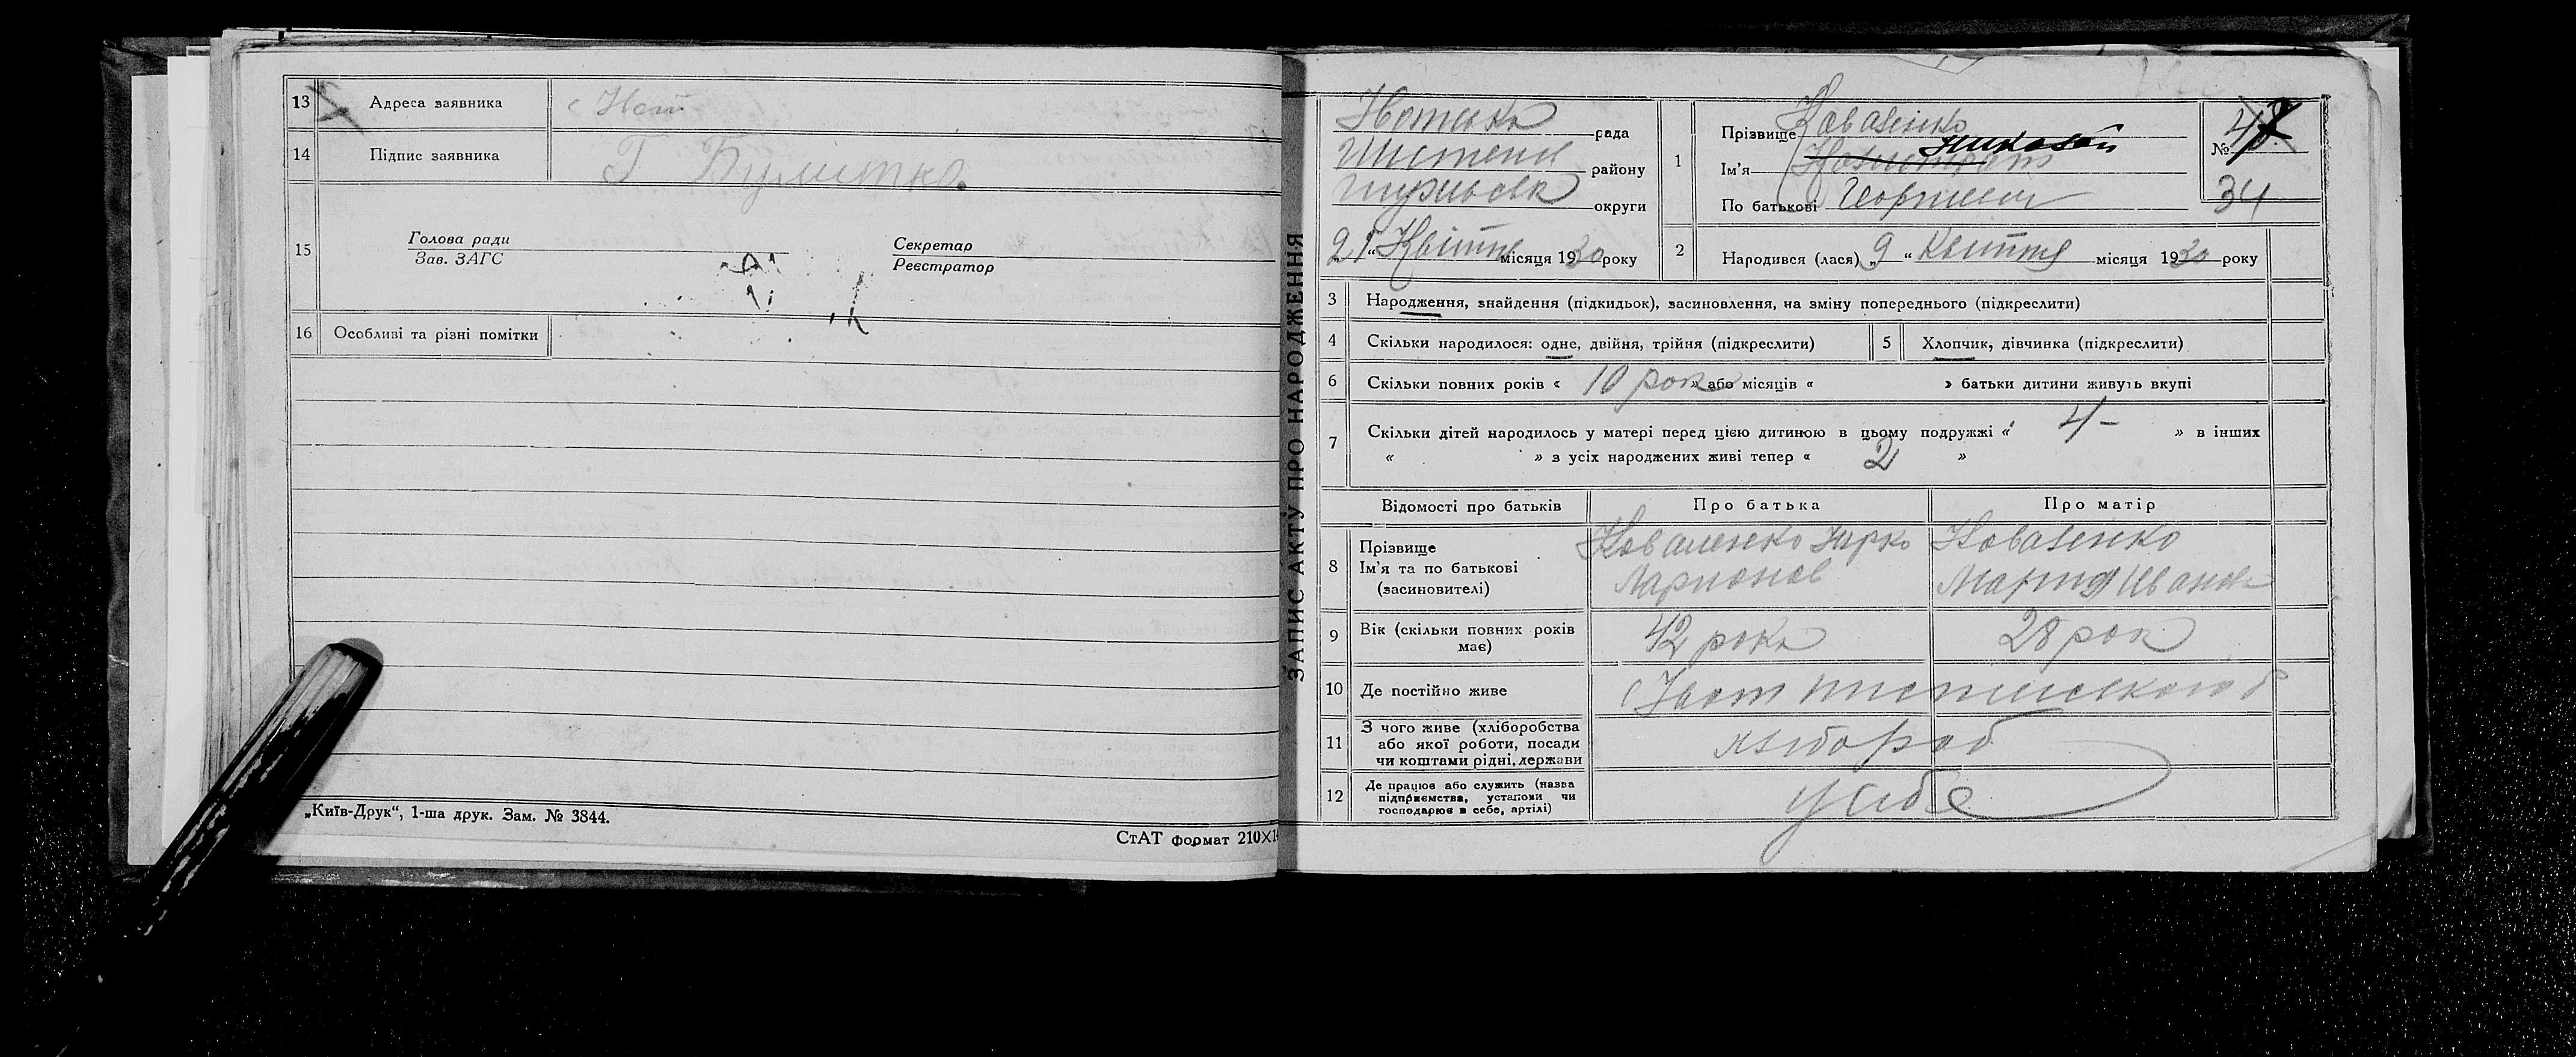 13 Адреса заявника
14 Підпис заявника
15 Голова ради
Зав. ЗАГС
Секретар
Реєстратор
16 Особливі та різні помітки
„Київ-Друк“, 1-ша друк. Зам. № 3844.
СтАТ формат 210×1
ЗАПИС АКТУ ПРО НАРОДЖЕННЯ
рада
району
округи
21 „ “ Квітня місяця 1930 року
1 Прізвище Коваленко
Ім'я Николай
По батькові
№
34
2 Народився (лася) „9 “ Квітня місяця 1930 року
3 Народження, знайдення (підкидьок), засиновлення, на зміну попереднього (підкреслити)
4 Скільки народилося: одне, двійня, трійня (підкреслити)
5 Хлопчик, дівчинка (підкреслити)
6 Скільки повних років « 10 рок » або місяців « » батьки дитини живуть вкупі
7 Скільки дітей народилось у матері перед цією дитиною в цьому подружжі « 4- » в інших
« » з усіх народжених живі тепер « 2 »
Відомості про батьків
Про батька
Про матір
8 Прізвище
Ім'я та по батькові
(засиновителі)
Коваленко
Ларионов
Коваленко
Мария Иванов
9 Вік (скільки повних років
має)
42 рока
28 рок
10 Де постійно живе
11 З чого живе (хліборобства
або якої роботи, посади
чи коштами рідні, держави
хлібороб
12 Де працює або служить (назва
підприємства, установи чи
господарює в себе, артілі)
у себе